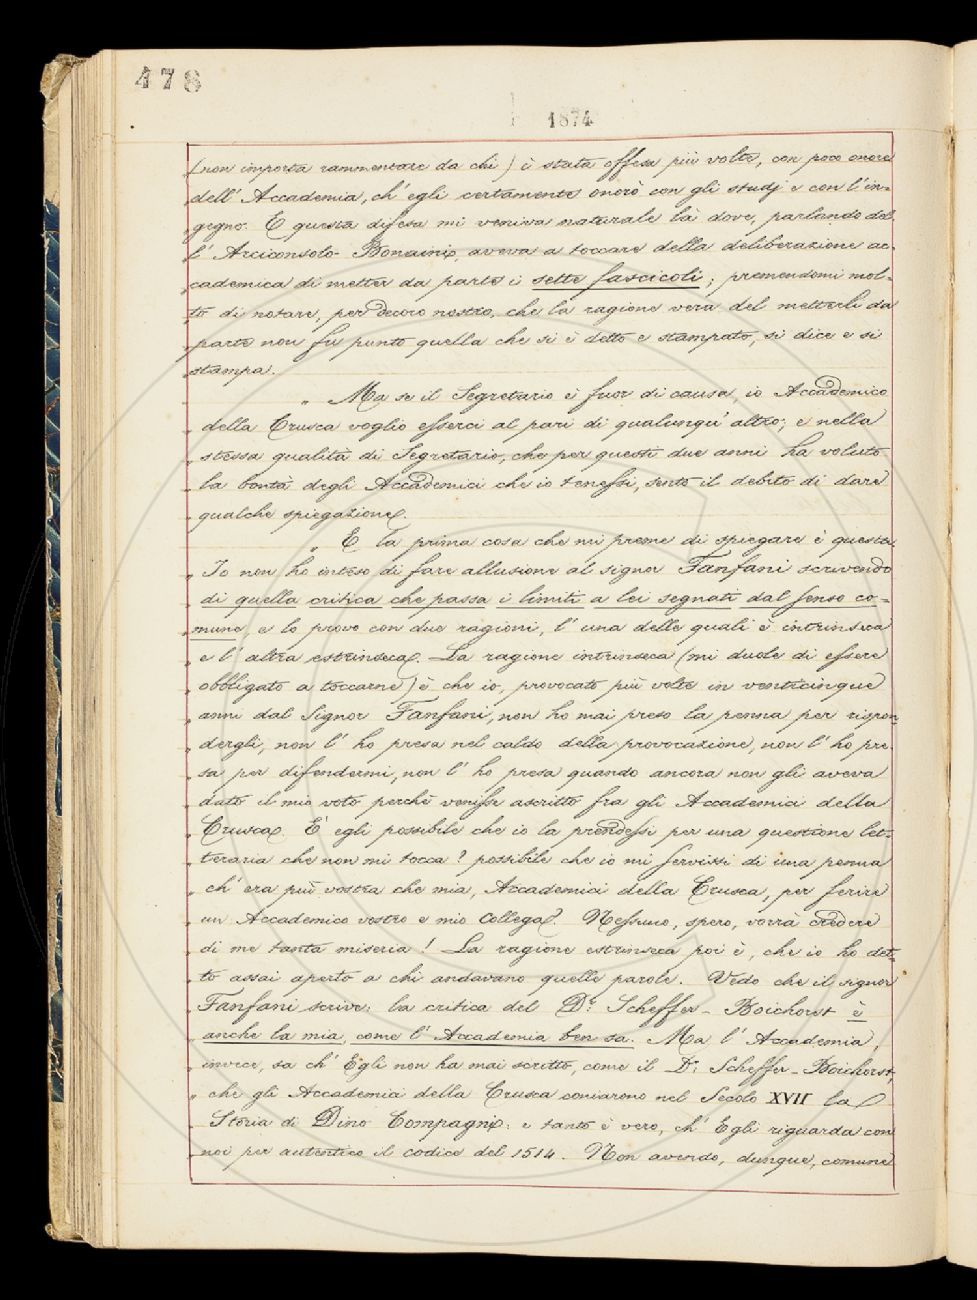 478
1874
(non importa rammentare da chi) è stata offesa più volte, con poco onore
dell' Accademia, ch' egli certamente onorò con gli studj e con l'in-
„ gegno. E questa difesa mi veniva naturale là dove, parlando del-
„ l' Arciconsolo Bonaini, aveva a toccare della deliberazione ac-
„ cademica di metter da parte i sette fascicoli; premendomi mol-
„ to di notare, per decoro nostro, che la ragione vera del metterli da
„ parte non fu punto quella che si è detto e stampato, si dice e si
„ stampa.
„ Ma se il Segretario è fuor di causa, io Accademico
„ della Crusca voglio esserci al pari di qualunqu' altro; e nella
„ stessa qualità di Segretario, che per questi due anni ha voluto
„ la bontà degli Accademici che io tenessi, sento il debito di dare
„ qualche spiegazione.
„ E la prima cosa che mi preme di spiegare è questa.
„ Io non ho inteso di fare allusione al signor Fanfani scrivendo
„ di quella critica che passa i limiti a lei segnati dal senso co-
„ mune, e lo provo con due ragioni, l' una delle quali è intrinseca
„ e l' altra estrinseca. La ragione intrinseca (mi duole di essere
„ obbligato a toccarne) è che io, provocato più volte in venticinque
„ anni dal Signor Fanfani, non ho mai preso la penna per rispon-
„ dergli, non l' ho presa nel caldo della provocazione, non l' ho pre-
„ sa per difendermi, non l' ho presa quando ancora non gli aveva
„ dato il mio voto perchè venisse ascritto fra gli Accademici della
„ Crusca. E' egli possibile che io la prendessi per una questione let-
„ teraria che non mi tocca? possibile che io mi servissi di una penna
„ ch' era più vostra che mia, Accademici della Crusca, per ferire
„ un Accademico vostro e mio Collega? Nessuno, spero, vorrà credere
„ di me tanta miseria! La ragione estrinseca poi è, che io ho det-
„ to assai aperto a chi andavano quelle parole. Vedo che il signor
„ Fanfani scrive: la critica del Dr: Scheffer-Boichorst è
„ anche la mia, come l' Accademia ben sa. Ma l' Accademia,
„ invece, sa ch' Egli non ha mai scritto, come il Dr: Scheffer-Boichorst,
„ che gli Accademici della Crusca coniarono nel Secolo XVII la
„ Storia di Dino Compagni: e tanto è vero, ch' Egli riguarda con
„ noi per autentico il codice del 1514. Non avendo, dunque, comune